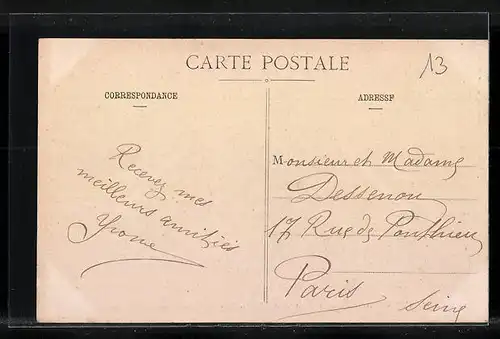 CARTE POSTALE
13
CORRESPONDANCE
ADRESSE
Recevez mes
meilleurs amitiés
Yvonne
Monsieur et Madame
Dessenou
17 Rue de Ponthieu
Paris Seine